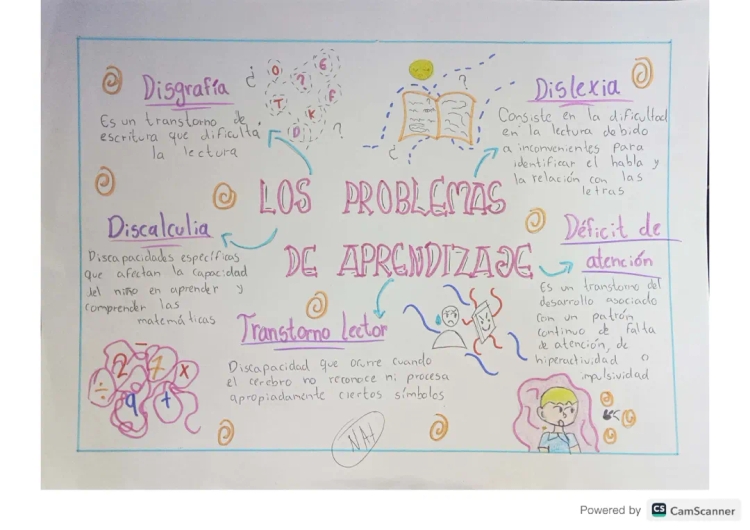 Disgrafía
Es un transtorno de
escritura que dificulta
la lectura
¿ O ? 6
T K F
D ?
?
¿
Dislexia
Consiste en la dificultad
en la lectura debido
a inconvenientes para
identificar el habla y
la relación con las
letras
LOS PROBLEMAS
DE APRENDIZAJE
Discalculia
Discapacidades específicas
que afectan la capacidad
del niño en aprender y
comprender las
matemáticas
Déficit de
atención
Es un transtorno del
desarrollo asociado
con un patrón
continuo de falta
de atención, de
hiperactividad o
impulsividad
Transtorno lector
Discapacidad que ocurre cuando
el cerebro no reconoce ni procesa
apropiadamente ciertos símbolos
÷ 2 - 7 x
9 +
Powered by CS CamScanner